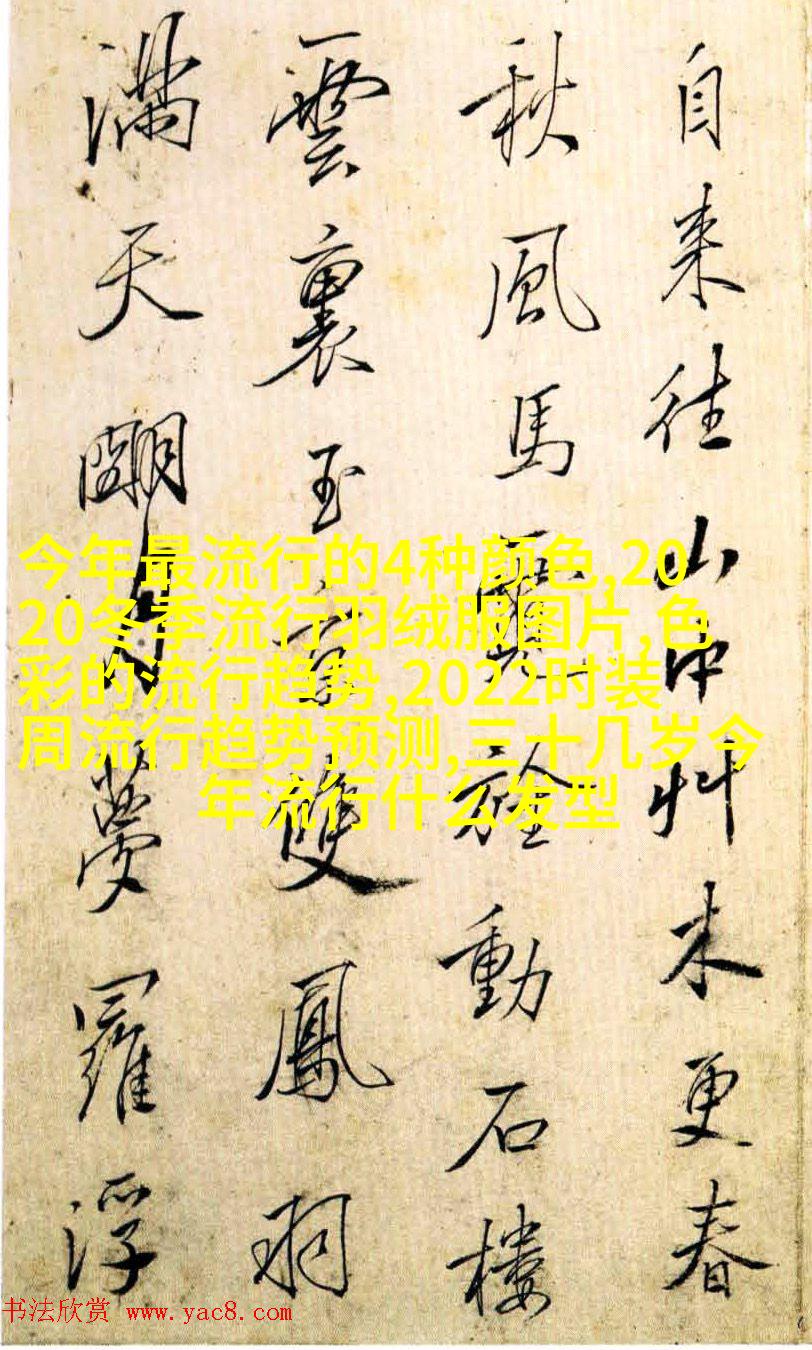 自来往山中艸木更春
秋風馬旌動石樓
雲裏玉京雙鳳
滿天明月夢羅浮
今年最流行的4种颜色,20
20冬季流行羽绒服图片,色
彩的流行趋势,2022时装
周流行趋势预测,三十几岁今
年流行什么发型
书法欣赏 www.yac8.com